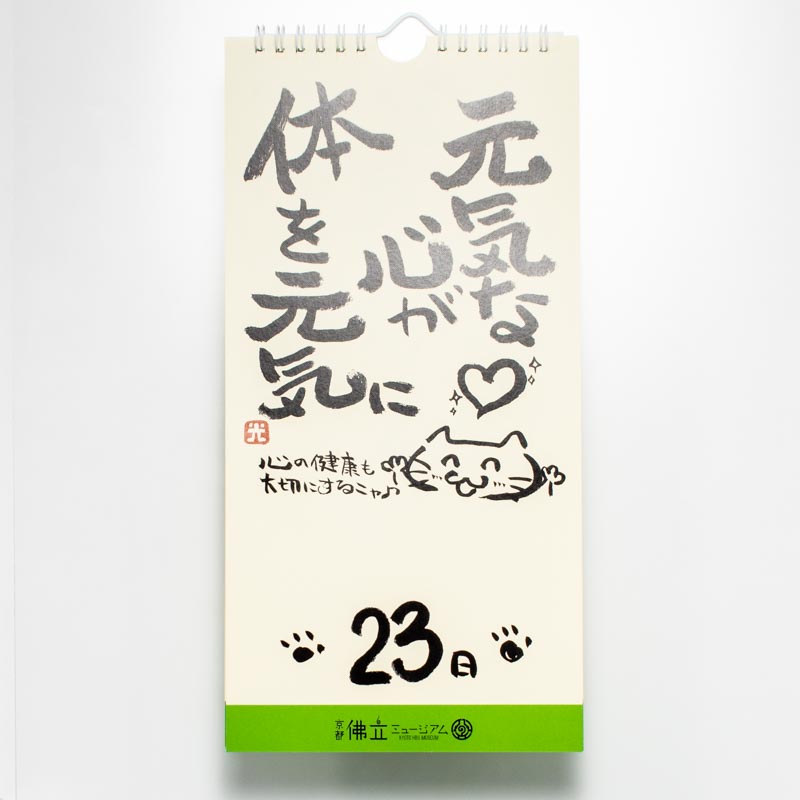 元気な
心が
体を
元気に
光
心の健康も
大切にするニャ♪
23日
京都佛立ミュージアム
KYOTO HBS MUSEUM